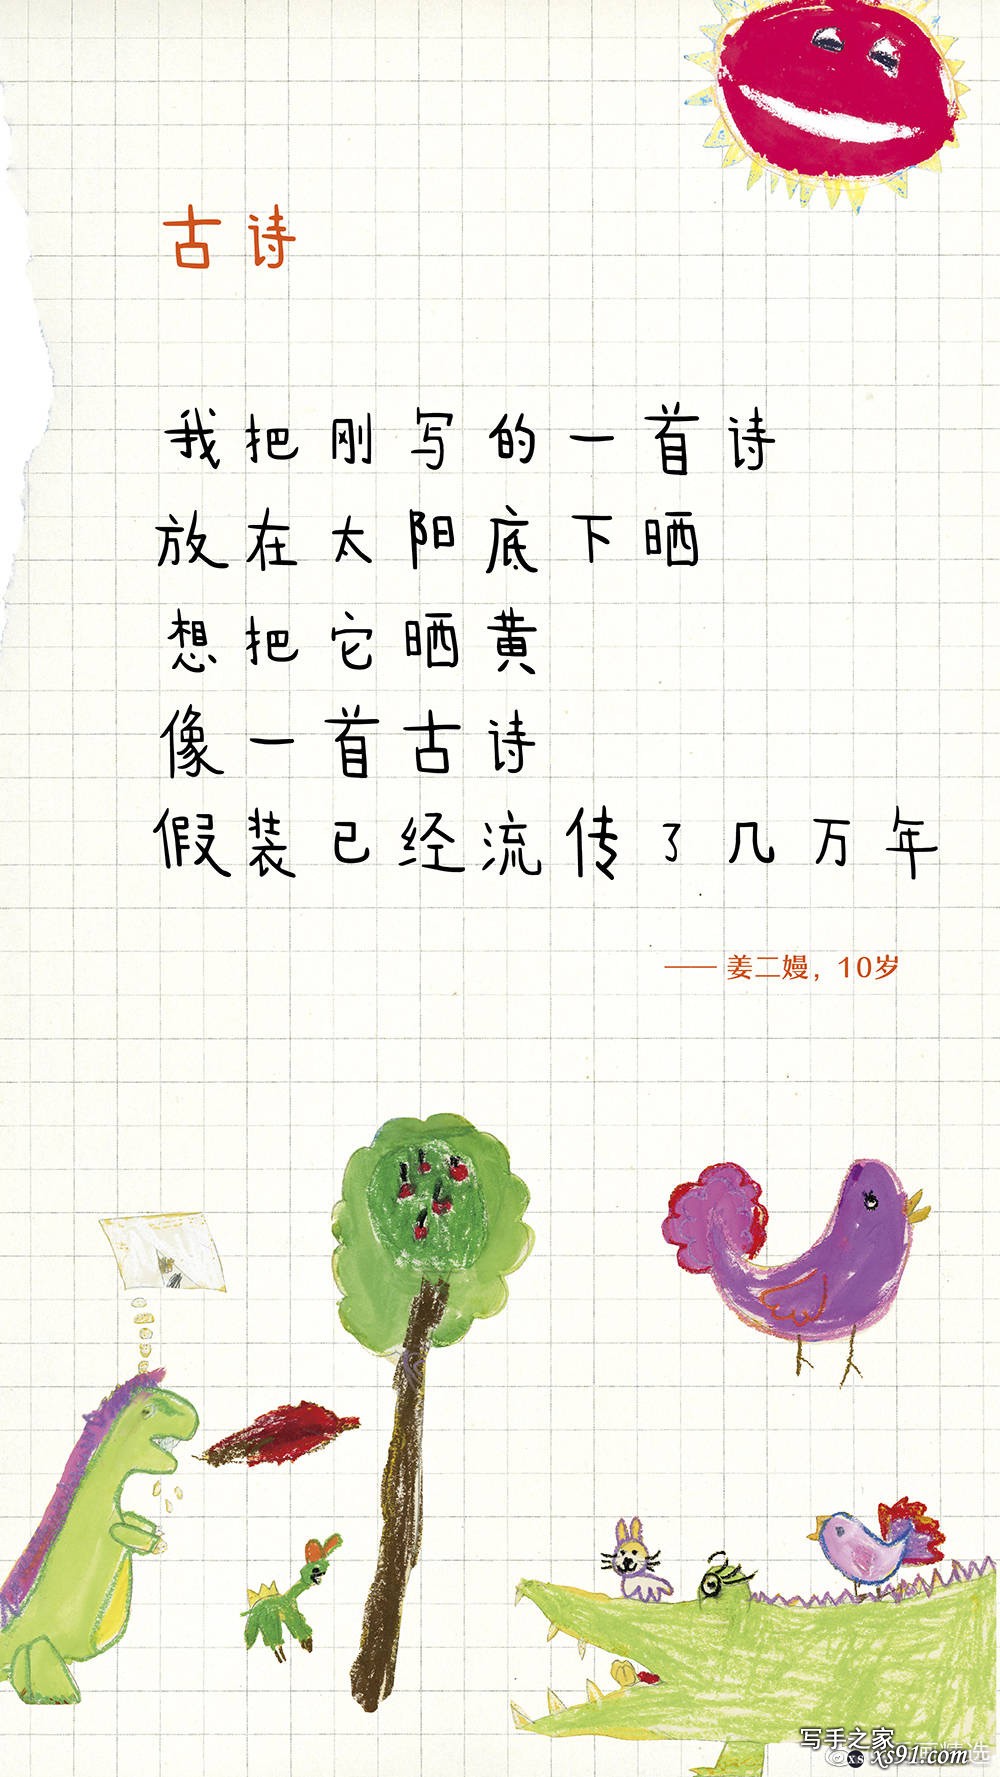 古诗
我把刚写的一首诗
放在太阳底下晒
想把它晒黄
像一首古诗
假装已经流传了几万年
—— 姜二嫚，10岁
写手之家
xs91.com
精选